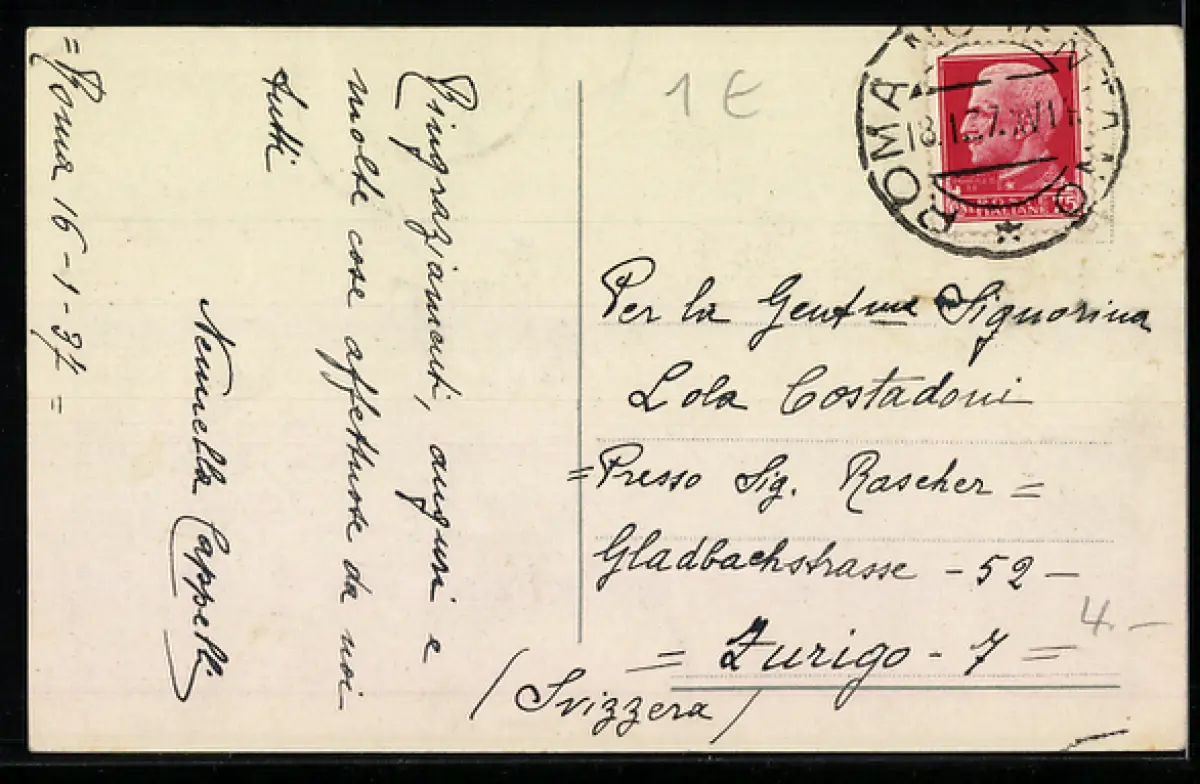 = Roma 16-1-37 =
Ringraziamenti, auguri e
molte cose affettuose da noi
tutti
Nennella Cappelli
1 E
ROMA NOMENTANO
18.1.37.XV 14
POSTE ITALIANE 75
Per la Gentma Signorina
Lola Costadoni
= Presso Sig. Rascher =
Gladbachstrasse - 52 -
= Zurigo - 7 =
(Svizzera)
4.-